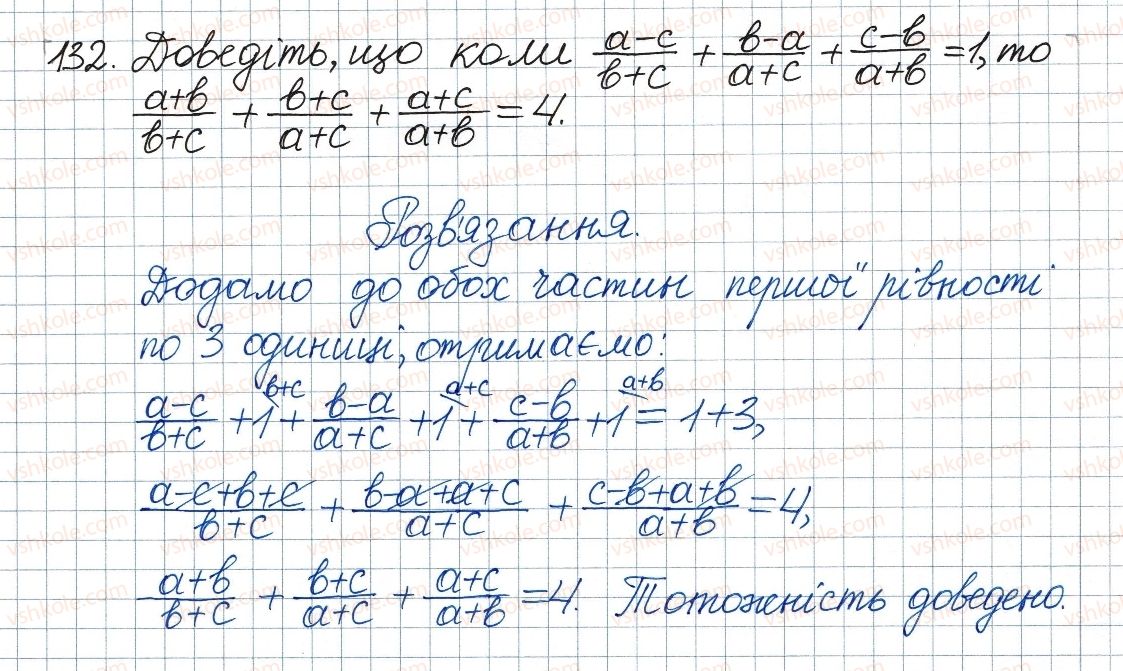 132. Доведіть, що коли (a-c)/(b+c) + (b-a)/(a+c) + (c-b)/(a+b) = 1, то
(a+b)/(b+c) + (b+c)/(a+c) + (a+c)/(a+b) = 4.
Розв'язання.
Додамо до обох частин першої рівності
по 3 одиниці, отримаємо:
(a-c)/(b+c) + 1^(b+c) + (b-a)/(a+c) + 1^(a+c) + (c-b)/(a+b) + 1^(a+b) = 1+3,
(a-c+b+c)/(b+c) + (b-a+a+c)/(a+c) + (c-b+a+b)/(a+b) = 4,
(a+b)/(b+c) + (b+c)/(a+c) + (a+c)/(a+b) = 4. Тотожність доведено.